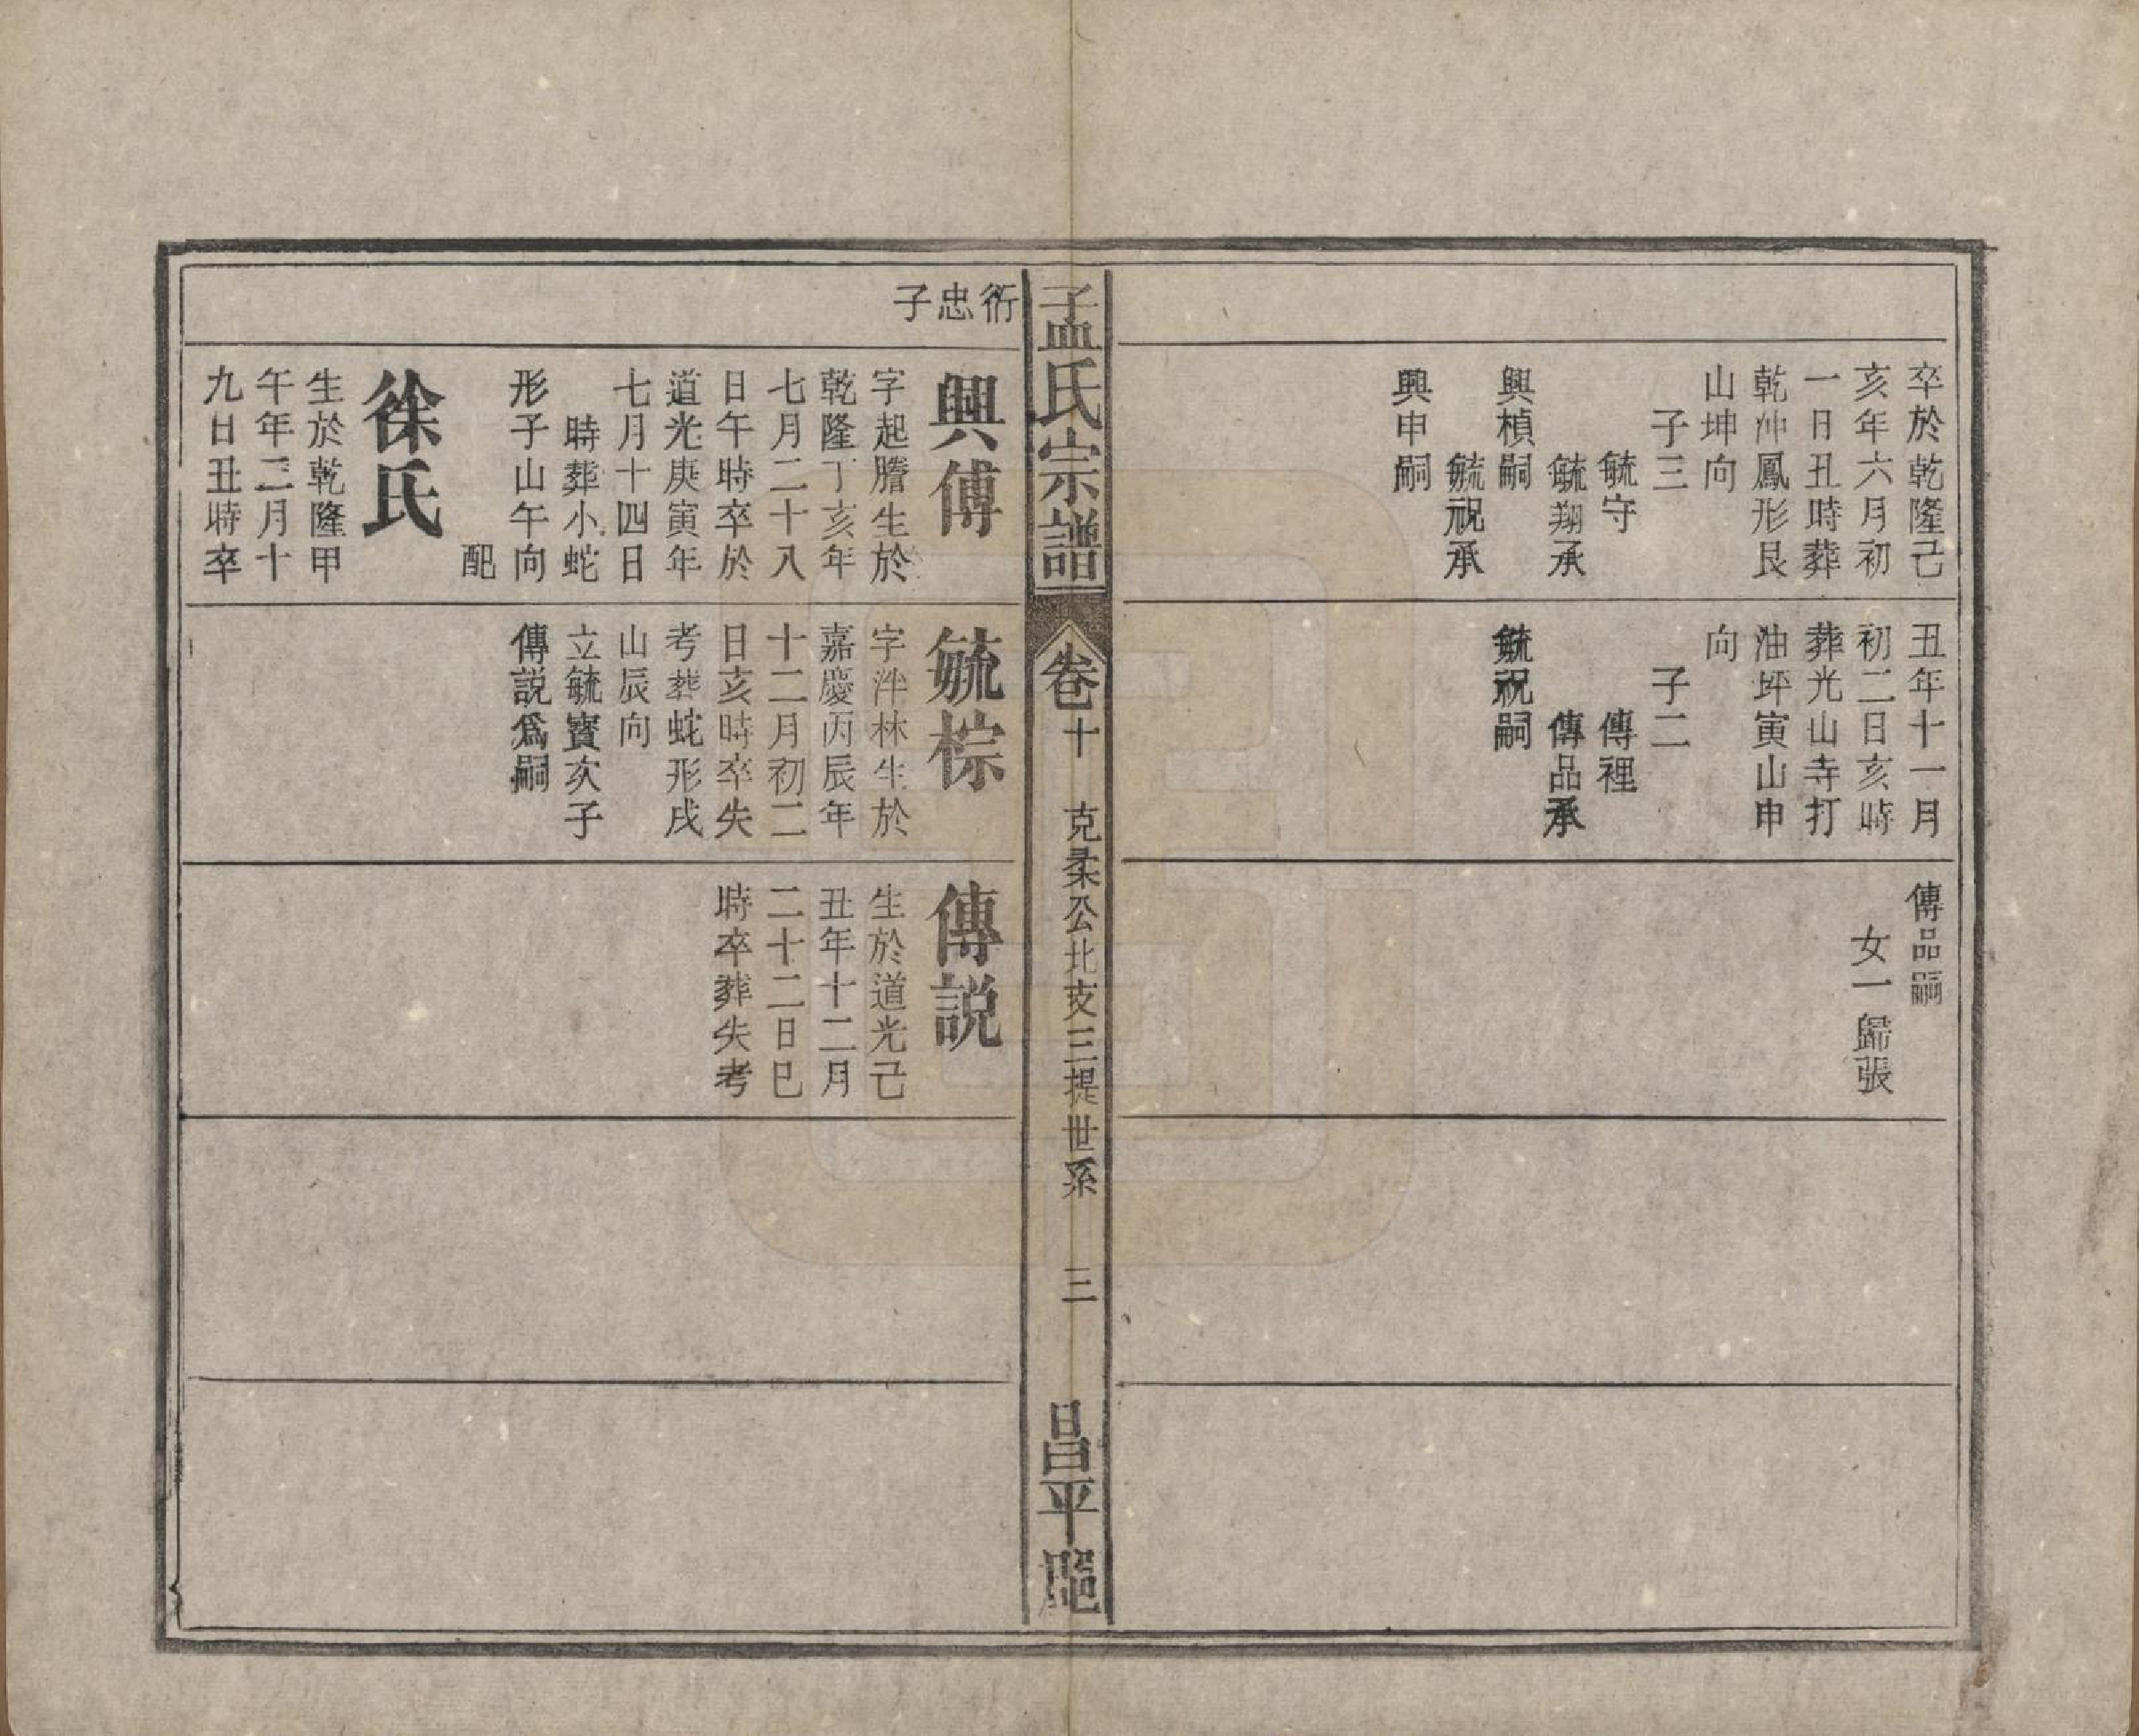 卒於乾隆己
亥年六月初
一日丑時葬
乾冲鳳形艮
山坤向
子三
毓守
毓翔承
興楨嗣
毓祝承
興申嗣
丑年十一月
初二日亥時
葬光山寺打
油坪寅山申
向
子二
傳裡
傳品承
毓祝嗣
傳品嗣
女一歸張
孟氏宗譜
卷十
克柔公北支三提世系
三
昌平
衍忠子
興傅
字起謄生於
乾隆丁亥年
七月二十八
日午時卒於
道光庚寅年
七月十四日
時葬小蛇
形子山午向
配
徐氏
生於乾隆甲
午年三月十
九日丑時卒
毓棕
字泮林生於
嘉慶丙辰年
十二月初二
日亥時卒失
考葬蛇形戌
山辰向
立毓賓次子
傳説爲嗣
傳説
生於道光己
丑年十二月
二十二日巳
時卒葬失考